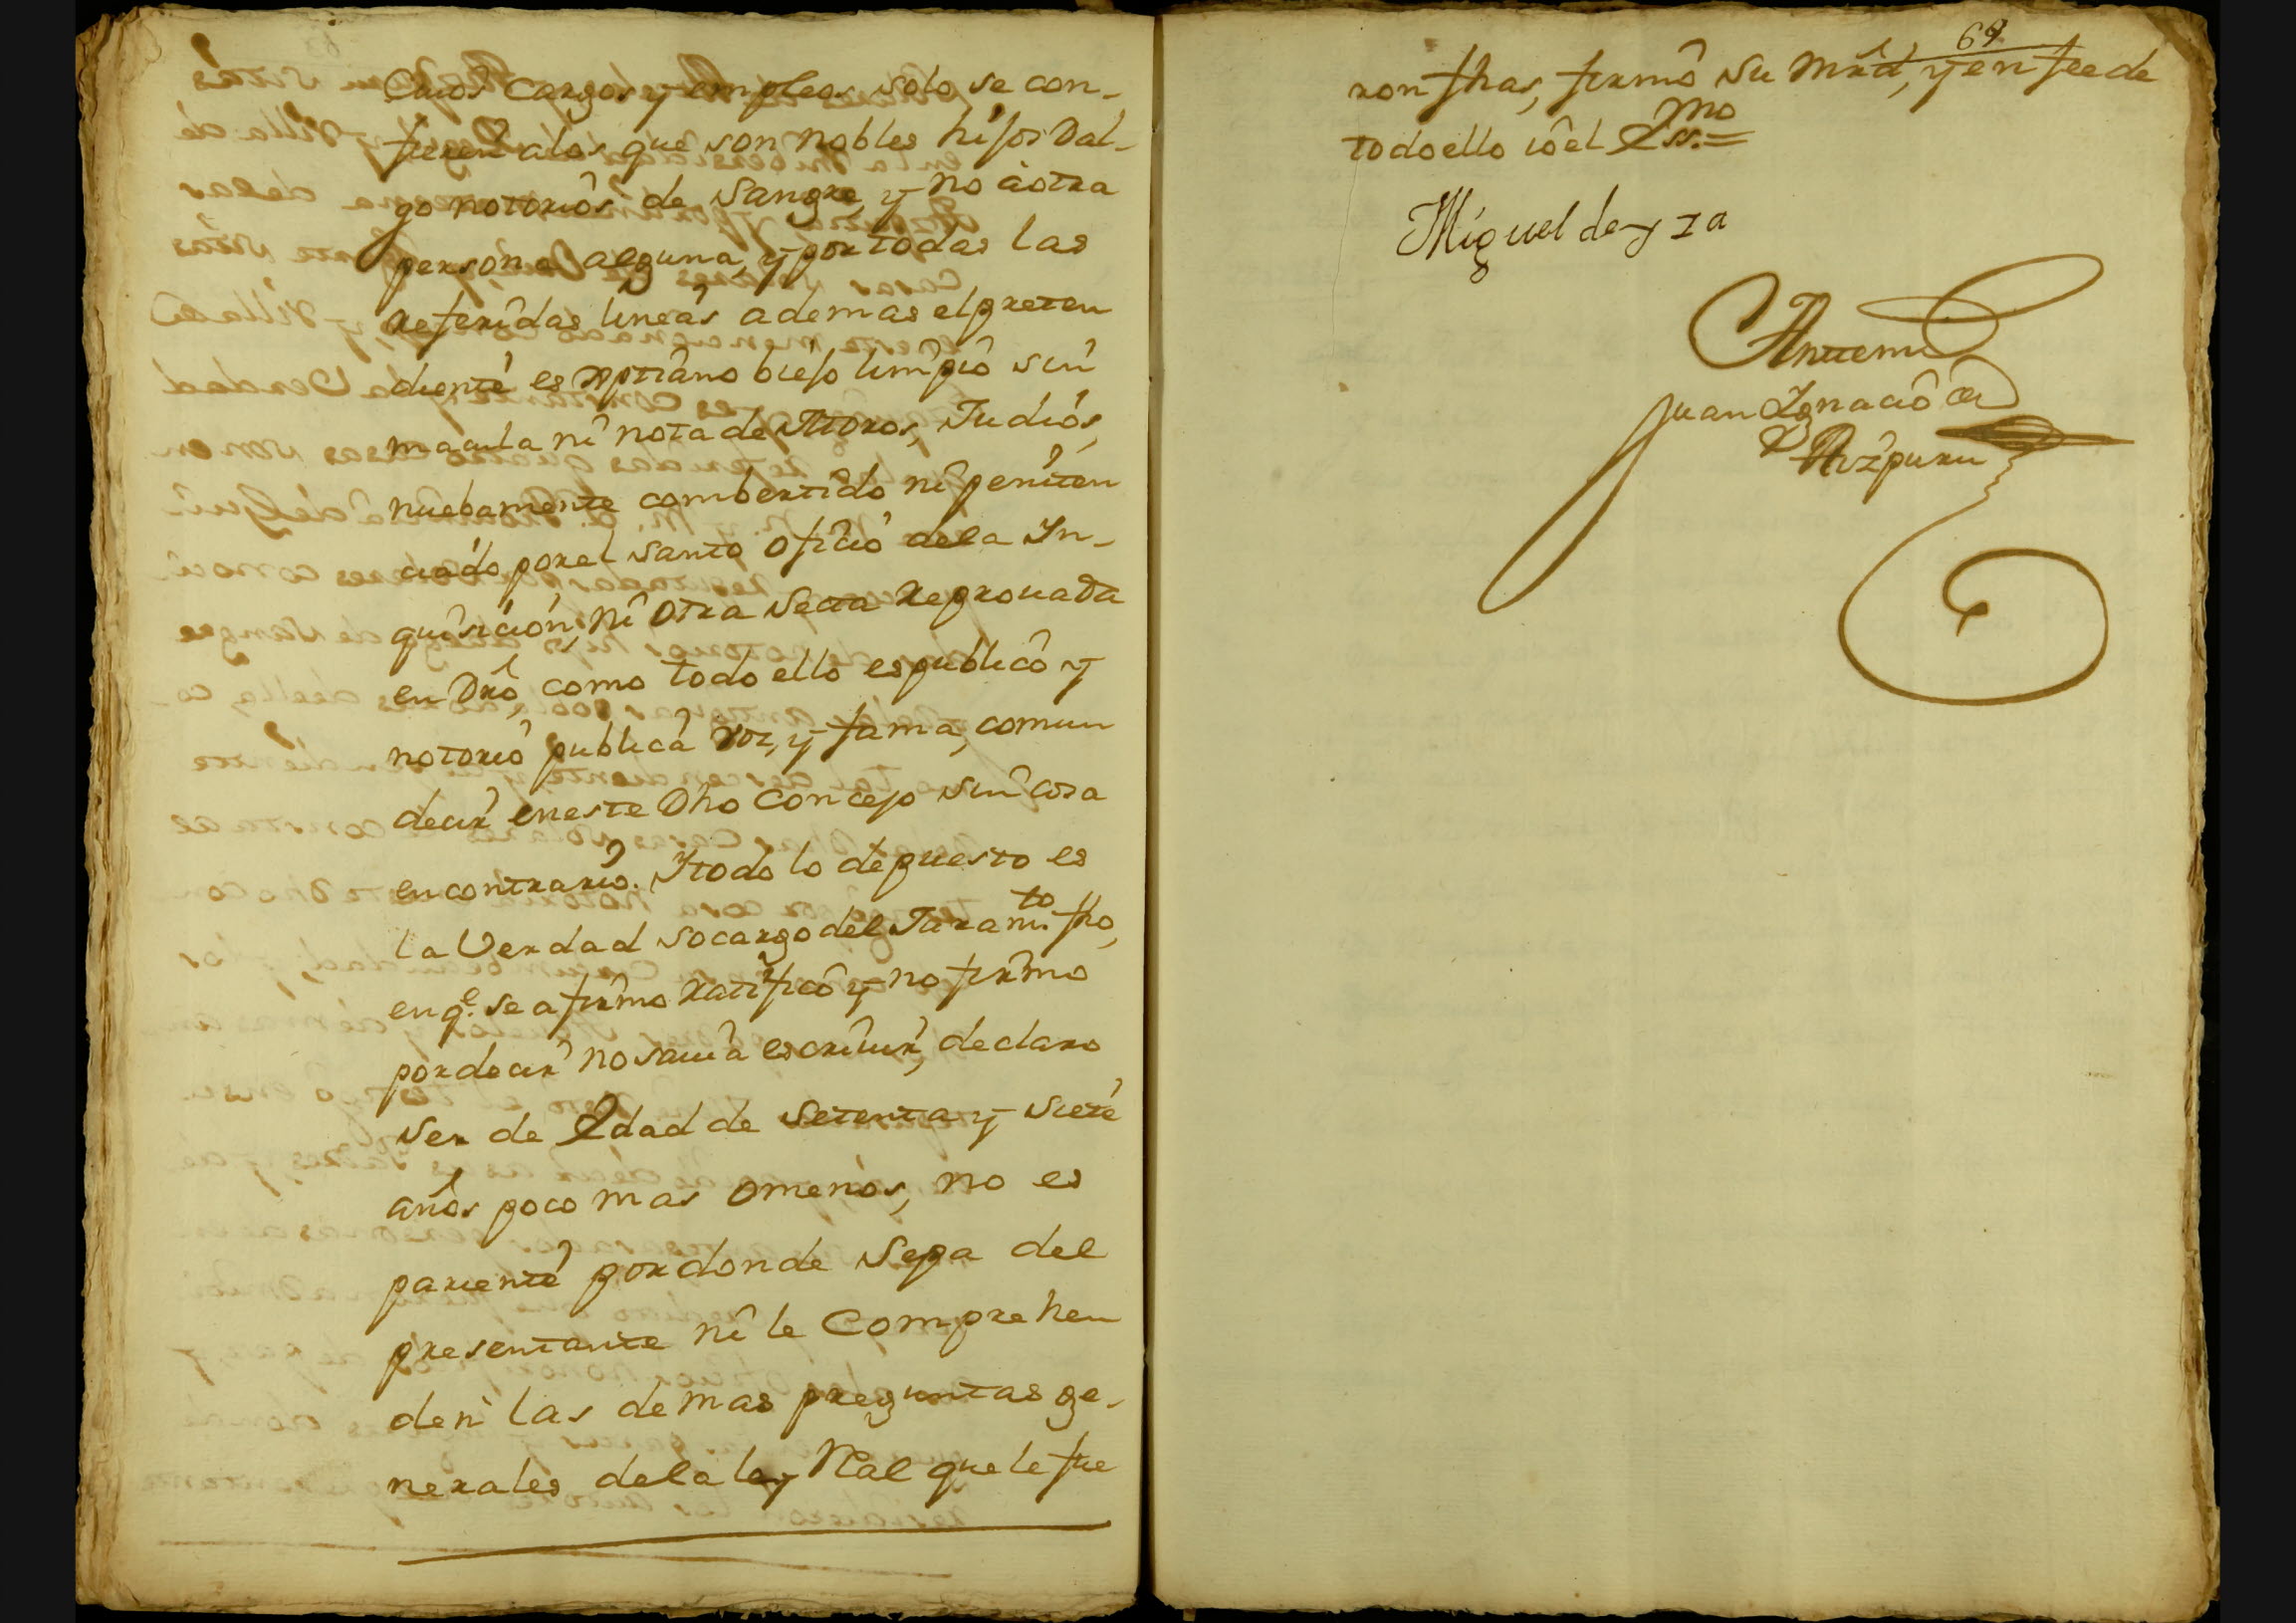 Cuios Cargos y empleos solo se con-
fieren alos que son nobles hijos Dal-
go notorios de Sangre, y no à otra
persona alguna, y por todas las
referidas lineas ademas el preten
diente es xptiano biejo limpio sin
macula ni nota de Moros, Judios,
nuebamente combertido ni peniten
ciado por el Santo Oficio dela In-
quisicion, ni otra Secta Reprouada
en Dro, como todo ello es publico y
notorio publica voz, y fama, comun
decir en este Dho Concejo sin cosa
en contrario. Y todo lo depuesto es
la Verdad so cargo del Juramto. fho,
en qe. se afirmo ratifico y no firmo
por decir no sauia escriuir, declaro
Ser de Edad de Setenta y Siete
años poco mas omenos, no es
pariente por donde Sepa del
presentante ni le Comprehen
den las demas preguntas ge-
nerales dela ley Real que le fue
69
ron fhas, firmô Su Mrd, y en fee de
todo ello iô el Essmo.=
Miguel de yza
Antemi
Juan Ignacio de
Aizpuru